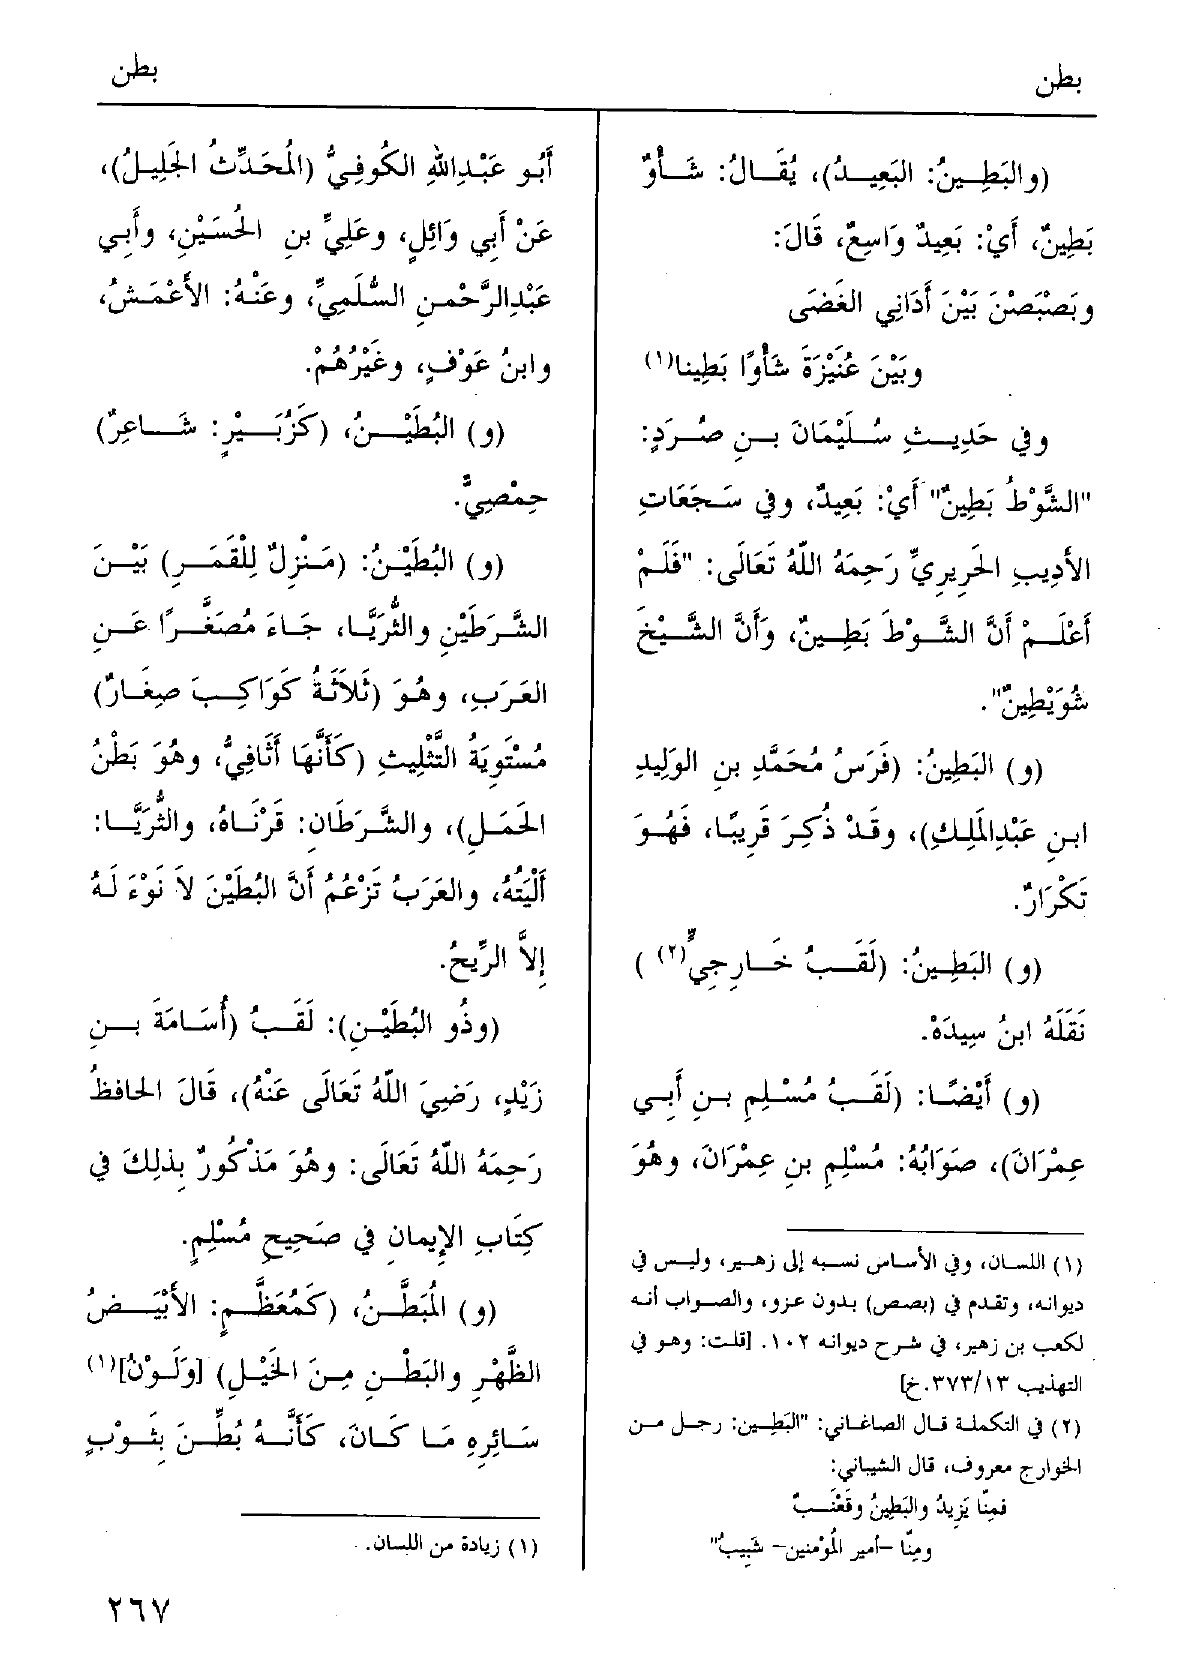 بطن
بطن
(والبَطِينُ: البَعِيدُ)، يُقَالُ: شَأْوٌ
بَطِينٌ، أَيْ: بَعِيدٌ وَاسِعٌ، قَالَ:
وبَصْبَصْنَ بَيْنَ أَدَانِي الغَضَى
وبَيْنَ عُنَيْزَةَ شَأْوًا بَطِينا(١)
وفي حَدِيثِ سُلَيْمَانَ بنِ صُرَدٍ:
"الشَّوْطُ بَطِينٌ" أَيْ: بَعِيدٌ، وفي سَجَعَاتِ
الأَدِيبِ الحَرِيرِيِّ رَحِمَهُ اللهُ تَعَالَى: "فَلَمْ
أَعْلَمْ أَنَّ الشَّوْطَ بَطِينٌ، وَأَنَّ الشَّيْخَ
شُوَيْطِينٌ".
(و) البَطِينُ: (فَرَسُ مُحَمَّدِ بنِ الوَلِيدِ
ابنِ عَبْدِالمَلِكِ)، وقَدْ ذُكِرَ قَرِيبًا، فَهُوَ
تَكْرَارٌ.
(و) البَطِينُ: (لَقَبُ خَارِجِيٍّ(٢) )
نَقَلَهُ ابنُ سِيدَهْ.
(و) أَيْضًا: (لَقَبُ مُسْلِمِ بنِ أَبِي
عِمْرَانَ)، صَوَابُهُ: مُسْلِمِ بنِ عِمْرَانَ، وهُوَ
(١) اللسان، وفي الأساس نسبه إلى زهير، وليس في
ديوانه، وتقدم في (بصص) بدون عزو، والصواب أنه
لكعب بن زهير، في شرح ديوانه ١٠٢. [قلت: وهو في
التهذيب ٣٧٣/١٣.خ]
(٢) في التكملة قال الصاغاني: "البَطِين: رجل من
الخوارج معروف، قال الشيباني:
فمِنّا يَزِيدُ والبَطِينُ وقَعْنَبٌ
ومِنّا –أمير المُؤْمنين– شَبِيبُ"
أَبُو عَبْدِاللهِ الكُوفِيُّ (المُحَدِّثُ الجَلِيلُ)،
عَنْ أَبِي وَائِلٍ، وعَلِيِّ بنِ الحُسَيْنِ، وأَبِي
عَبْدِالرَّحْمنِ السُّلَمِيِّ، وعَنْهُ: الأَعْمَشُ،
وابنُ عَوْفٍ، وغَيْرُهُمْ.
(و) البُطَيْنُ، (كَزُبَيْرٍ: شَاعِرٌ)
حِمْصِيٌّ.
(و) البُطَيْنُ: (مَنْزِلٌ لِلْقَمَرِ) بَيْنَ
الشَّرَطَيْنِ والثُّرَيَّا، جَاءَ مُصَغَّرًا عَنِ
العَرَبِ، وهُوَ (ثَلاَثَةُ كَوَاكِبَ صِغَارٌ)
مُسْتَوِيَةُ التَّثْلِيثِ (كَأَنَّهَا أَثَافِيُّ، وهُوَ بَطْنُ
الحَمَلِ)، والشَّرَطَانِ: قَرْنَاهُ، والثُّرَيَّا:
أَلْيَتُهُ، والعَرَبُ تَزْعُمُ أَنَّ البُطَيْنَ لاَ نَوْءَ لَهُ
إِلاَّ الرِّيحُ.
(وذُو البُطَيْنِ): لَقَبُ (أُسَامَةَ بنِ
زَيْدٍ، رَضِيَ اللهُ تَعَالَى عَنْهُ)، قَالَ الحَافظُ
رَحِمَهُ اللهُ تَعَالَى: وهُوَ مَذْكُورٌ بِذلِكَ في
كِتَابِ الإِيمَانِ في صَحِيحِ مُسْلِمٍ.
(و) المُبَطَّنُ، (كَمُعَظَّمٍ: الأَبْيَضُ
الظَّهْرِ والبَطْنِ مِنَ الخَيْلِ) [وَلَوْنُ](١)
سَائِرِهِ مَا كَانَ، كَأَنَّهُ بُطِّنَ بِثَوْبٍ
(١) زيادة من اللسان.
٢٦٧